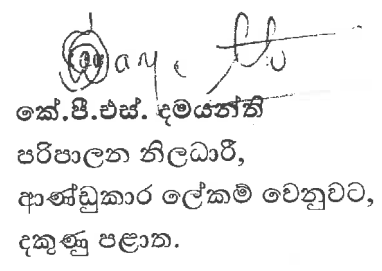 කේ.පී.එස්. දමයන්ති
පරිපාලන නිලධාරී,
ආණ්ඩුකාර ලේකම් වෙනුවට,
දකුණු පළාත.